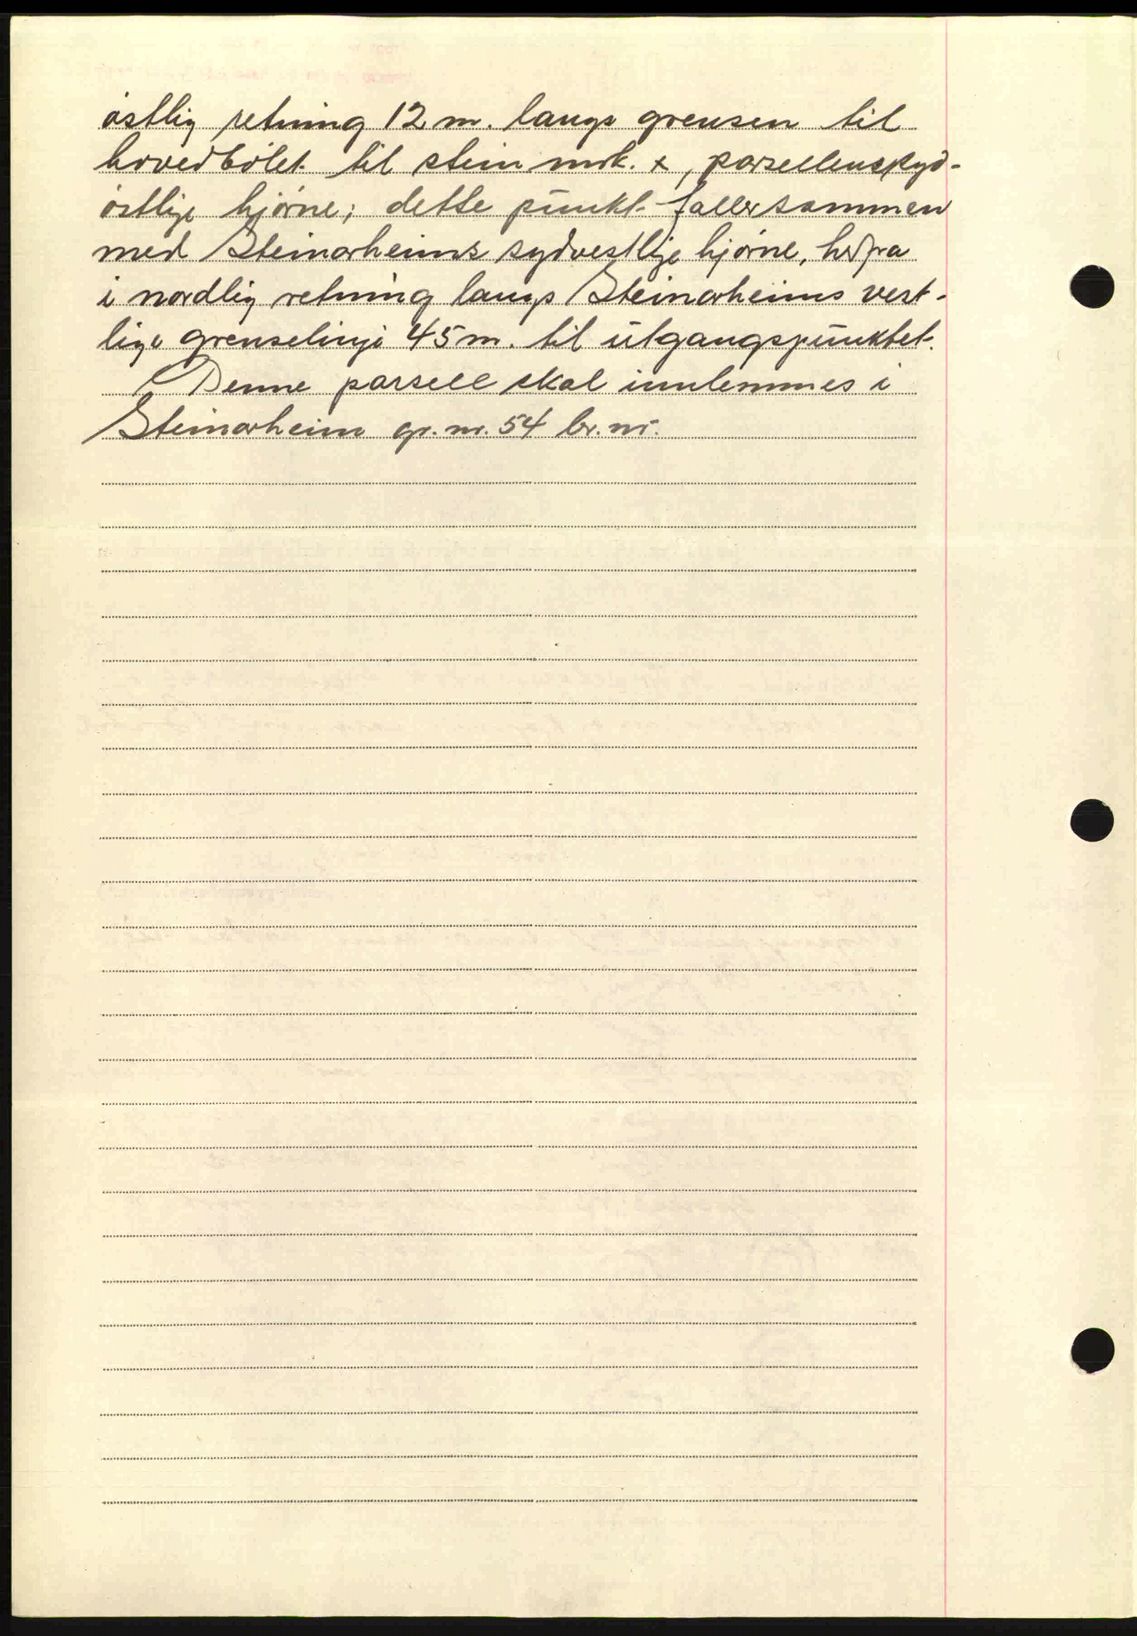 østlig retning 12 m. langs grensen til
hovedbølet til stein mrk. x, parsellens syd-
østlige hjørne; dette punkt faller sammen
med Steinarheims sydvestlige hjørne, herfra
i nordlig retning langs Steinarheims vest-
lige grenselinje 45 m. til utgangspunktet.
Denne parsell skal innlemmes i
Steinarheim gr. nr. 54 br. nr.